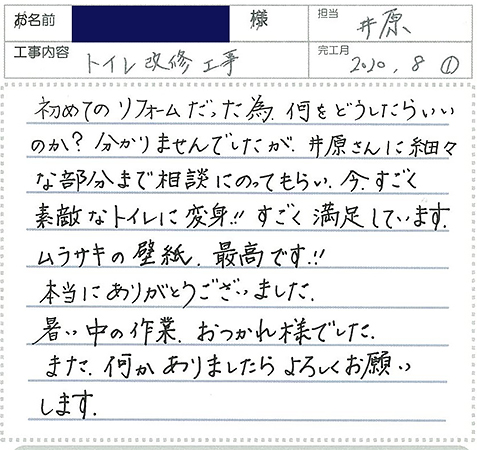 お名前 様 担当 井原
工事内容 トイレ改修工事 完工月 2020.8 ①
初めてのリフォームだった為、何をどうしたらいい
のか?分かりませんでしたが、井原さんに細々
な部分まで相談にのってもらい、今、すごく
素敵なトイレに変身!!すごく満足しています。
ムラサキの壁紙、最高です!!
本当にありがとうございました。
暑い中の作業、おつかれ様でした。
また、何かありましたらよろしくお願い
します。